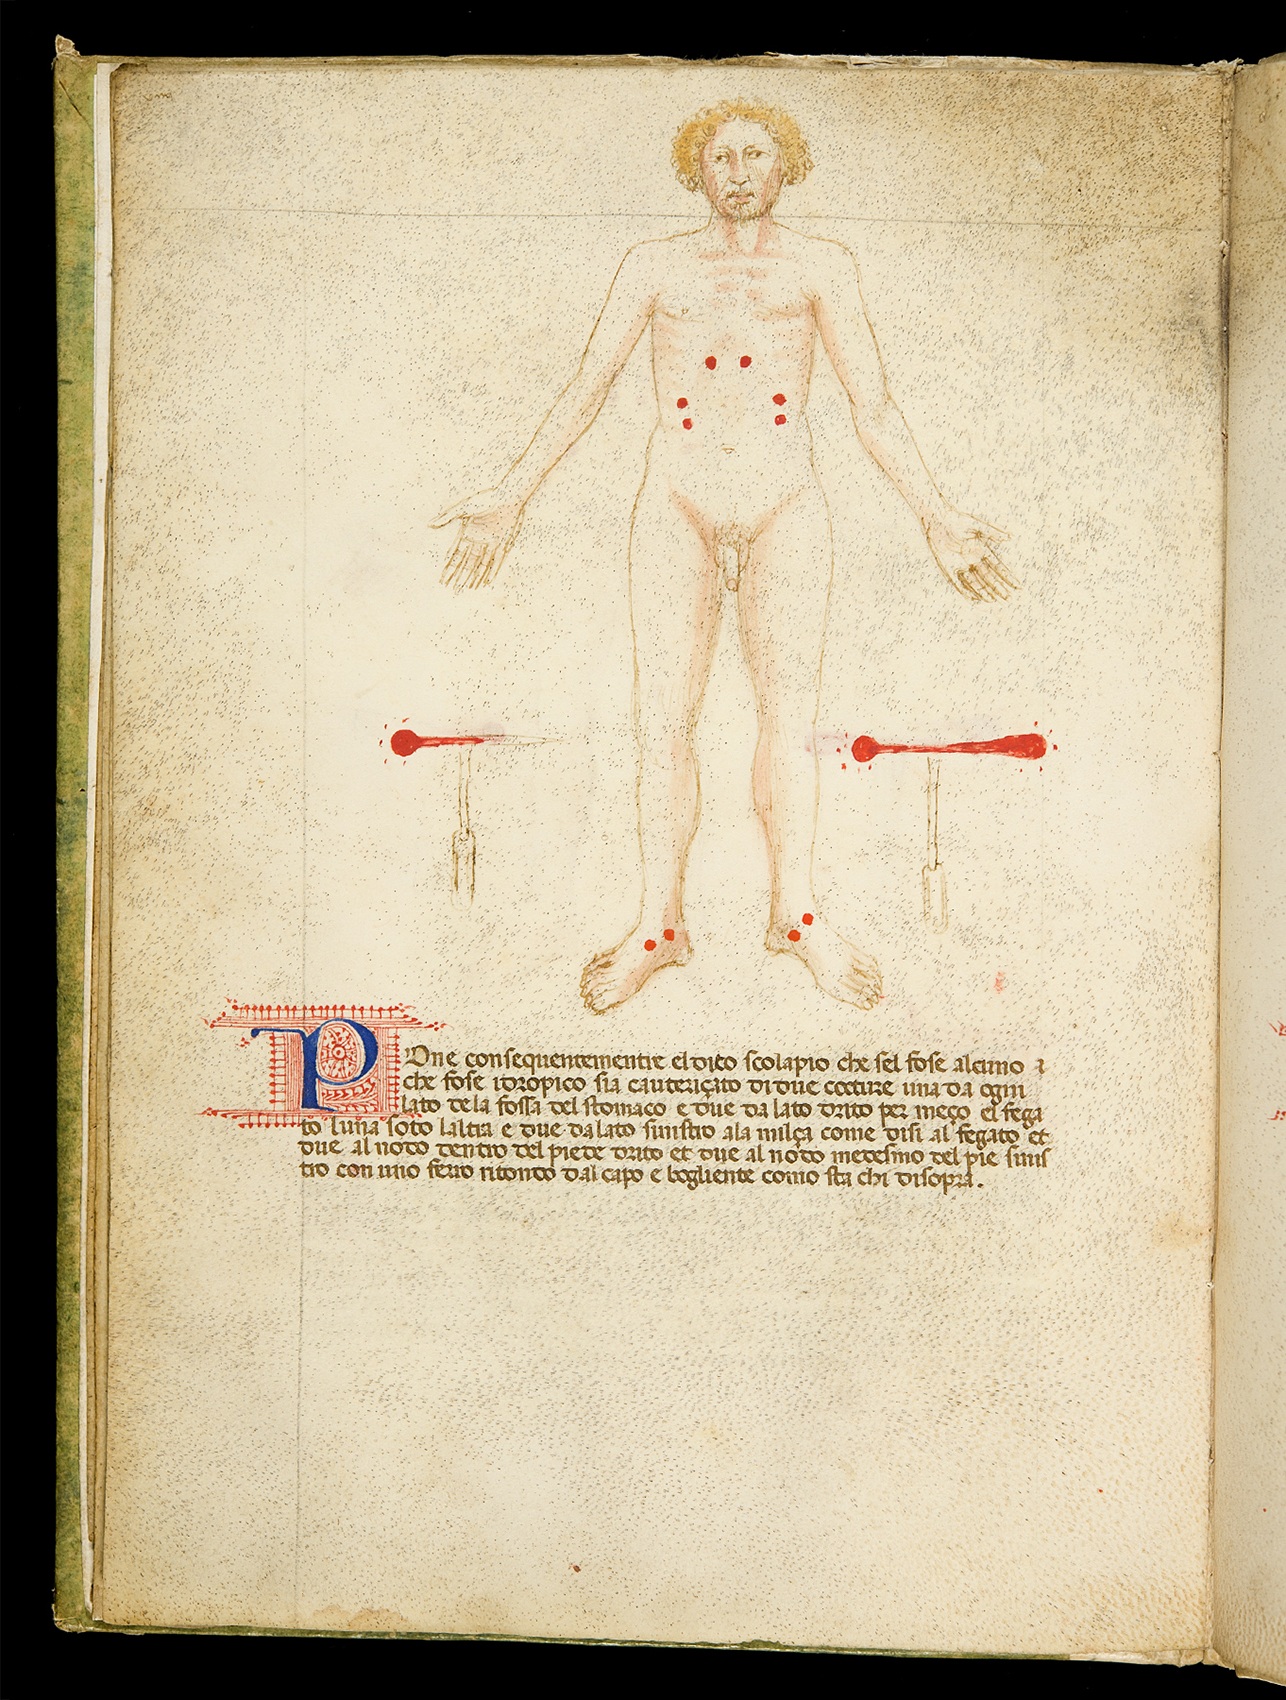 POne consequentementre el dito scolapio che sel fose alcuno a
che fose idropico sia cauteriçato di due cocture una da ogni
lato de la fossa del stomaco e due da lato drito per meço el fega
to luna soto laltra e due da lato sinistro ala milça come disi al fegato et
due al nodo dentro del piede drito et due al nodo medesmo del pie sinis
tro con uno ferro ritondo dal capo e bogliente como sta chi disopra.